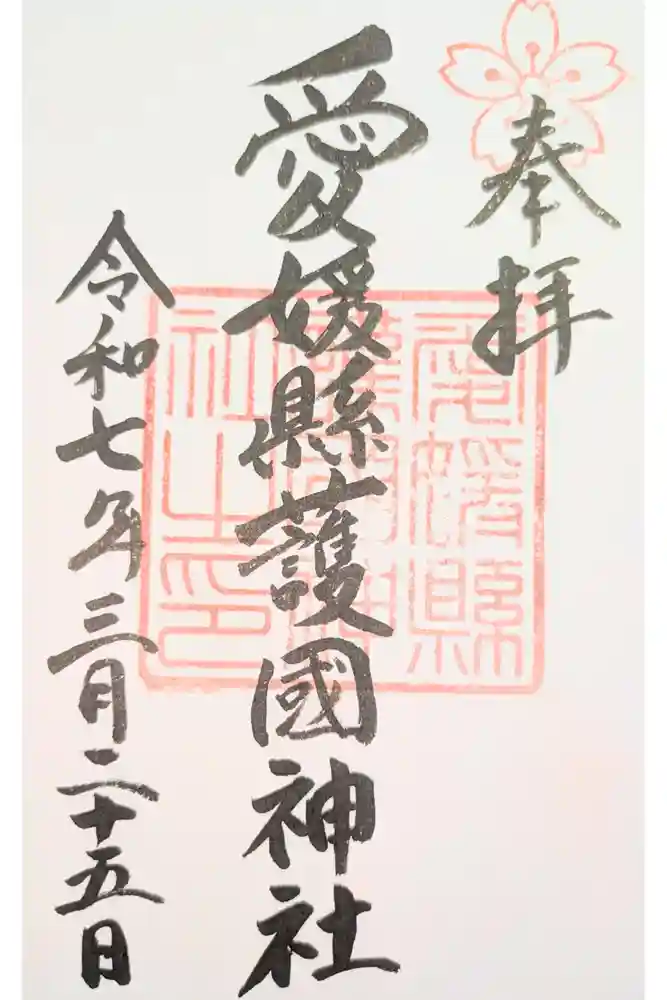 奉拝
愛媛縣護國神社
愛媛縣護國神社之印
令和七年三月二十五日